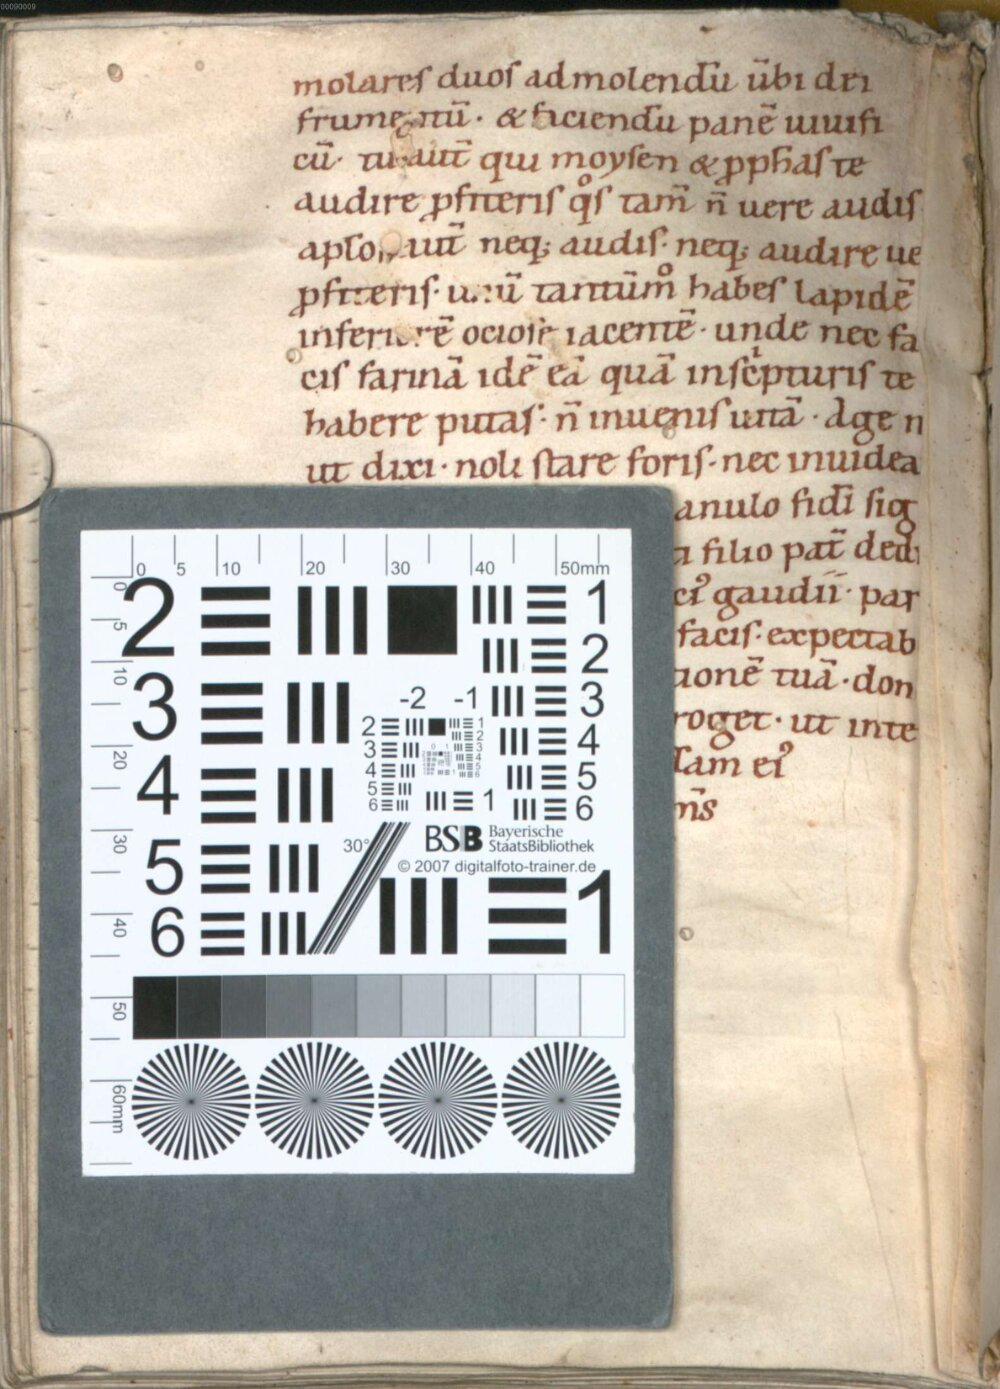 00090009
molares duos ad molendū ūbi dei
frume ntū · & faciendū panē uiuifi
cū · tu aut̄ qui moysen & pphas te
audire pfiteris qͦs tam̄ n̄ uere audis
aplo aut̄ neq; audis · neq; audire ue
pfiteris · unū tantūm̊ habes lapidē
inferiorē ociose iacentē · unde nec fa
cis farinā idē eā quā in scpturis te
habere putas · n̄ inuenis uitā · Age n
ut dixi · noli stare foris · nec inuidea
anulo fidi sig
filio pat̄ dedi
gaudii · par
facis · expectab
tionē tuā · don
roget · ut inte
lam ei
m̄s
0 5 10 20 30 40 50mm
0 5 10 20 30 40 50 60mm
2 1
2
3 -2 -1 3
2 1
2
3 3
4 4
4 4
5 5
5
6 1 6
30°
BSB Bayerische
StaatsBibliothek
© 2007 digitalfoto-trainer.de
5 1
6